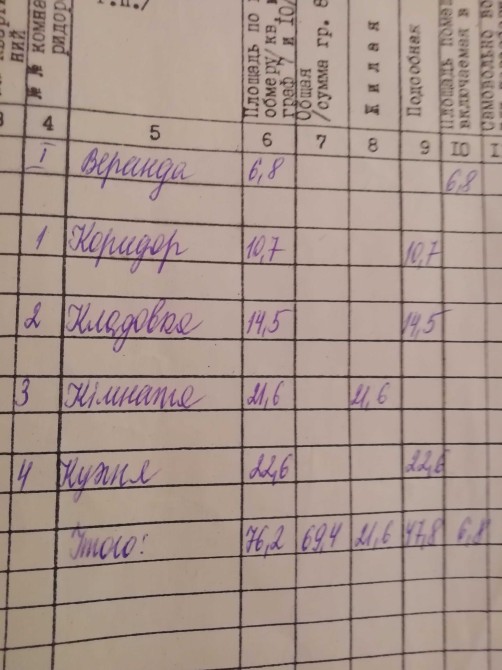 № № комна
ридор
Площадь по
обмеру/кв.
граф 7 и 10/
Общая
/сумма гр. 8
Жилая
Подсобная
Площадь
включаемая в
Самовольно
4 5 6 7 8 9 10
I Веранда 6,8 6,8
1 Коридор 10,7 10,7
2 Кладовка 14,5 14,5
3 Кімната 21,6 21,6
4 Кухня 22,6 22,6
Итого: 76,2 69,4 21,6 47,8 6,8